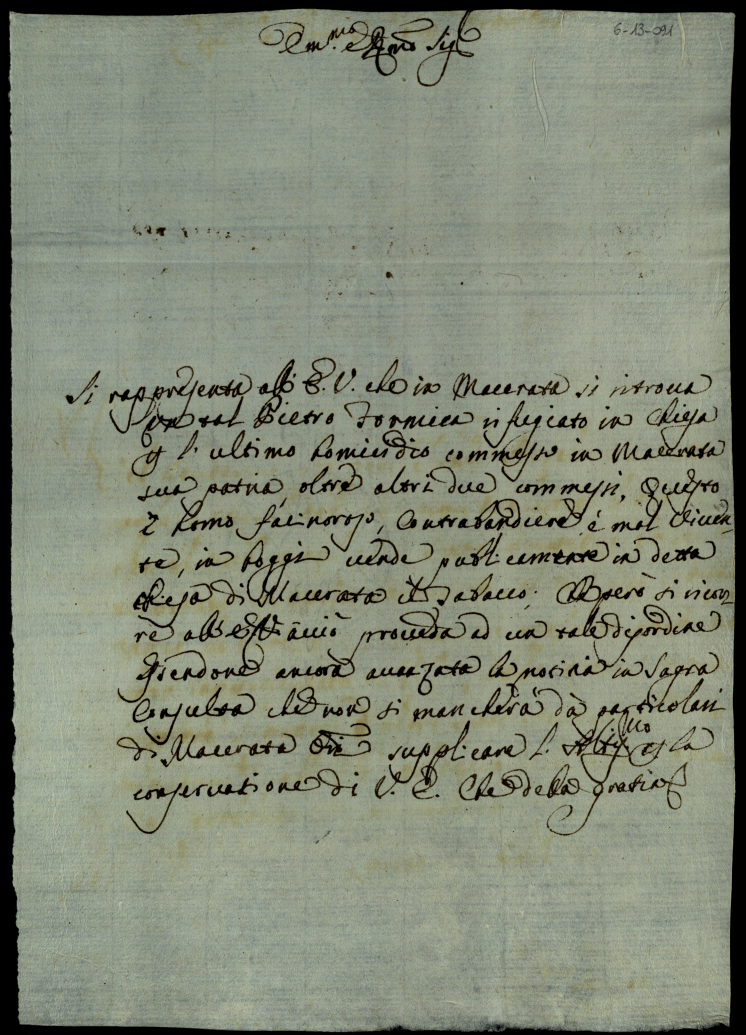 6-13-091
Em.mo e R.mo Sig.re
Si rappresenta all' E. V. che in Macerata si ritroua
un tal Pietro Formica rifugiato in Chiesa
p l'ultimo homicidio commesso in Macerata
sua patria, oltre altri due commessi, Questo
è homo facinoroso, Contrabandiere, é mal Viuen-
te, in hoggi uende publicamente in detta
Chiesa di Macerata il Tabacco; E però si ricor-
re all' E. V. acciò proueda ad un tale disordine
essendone ancora auanzata la notitia in Sagra
Consulta che non si mancherà da particolari
di Macerata supplicare l' Altiss.mo p la
conseruatione di V. E. Che della gratia